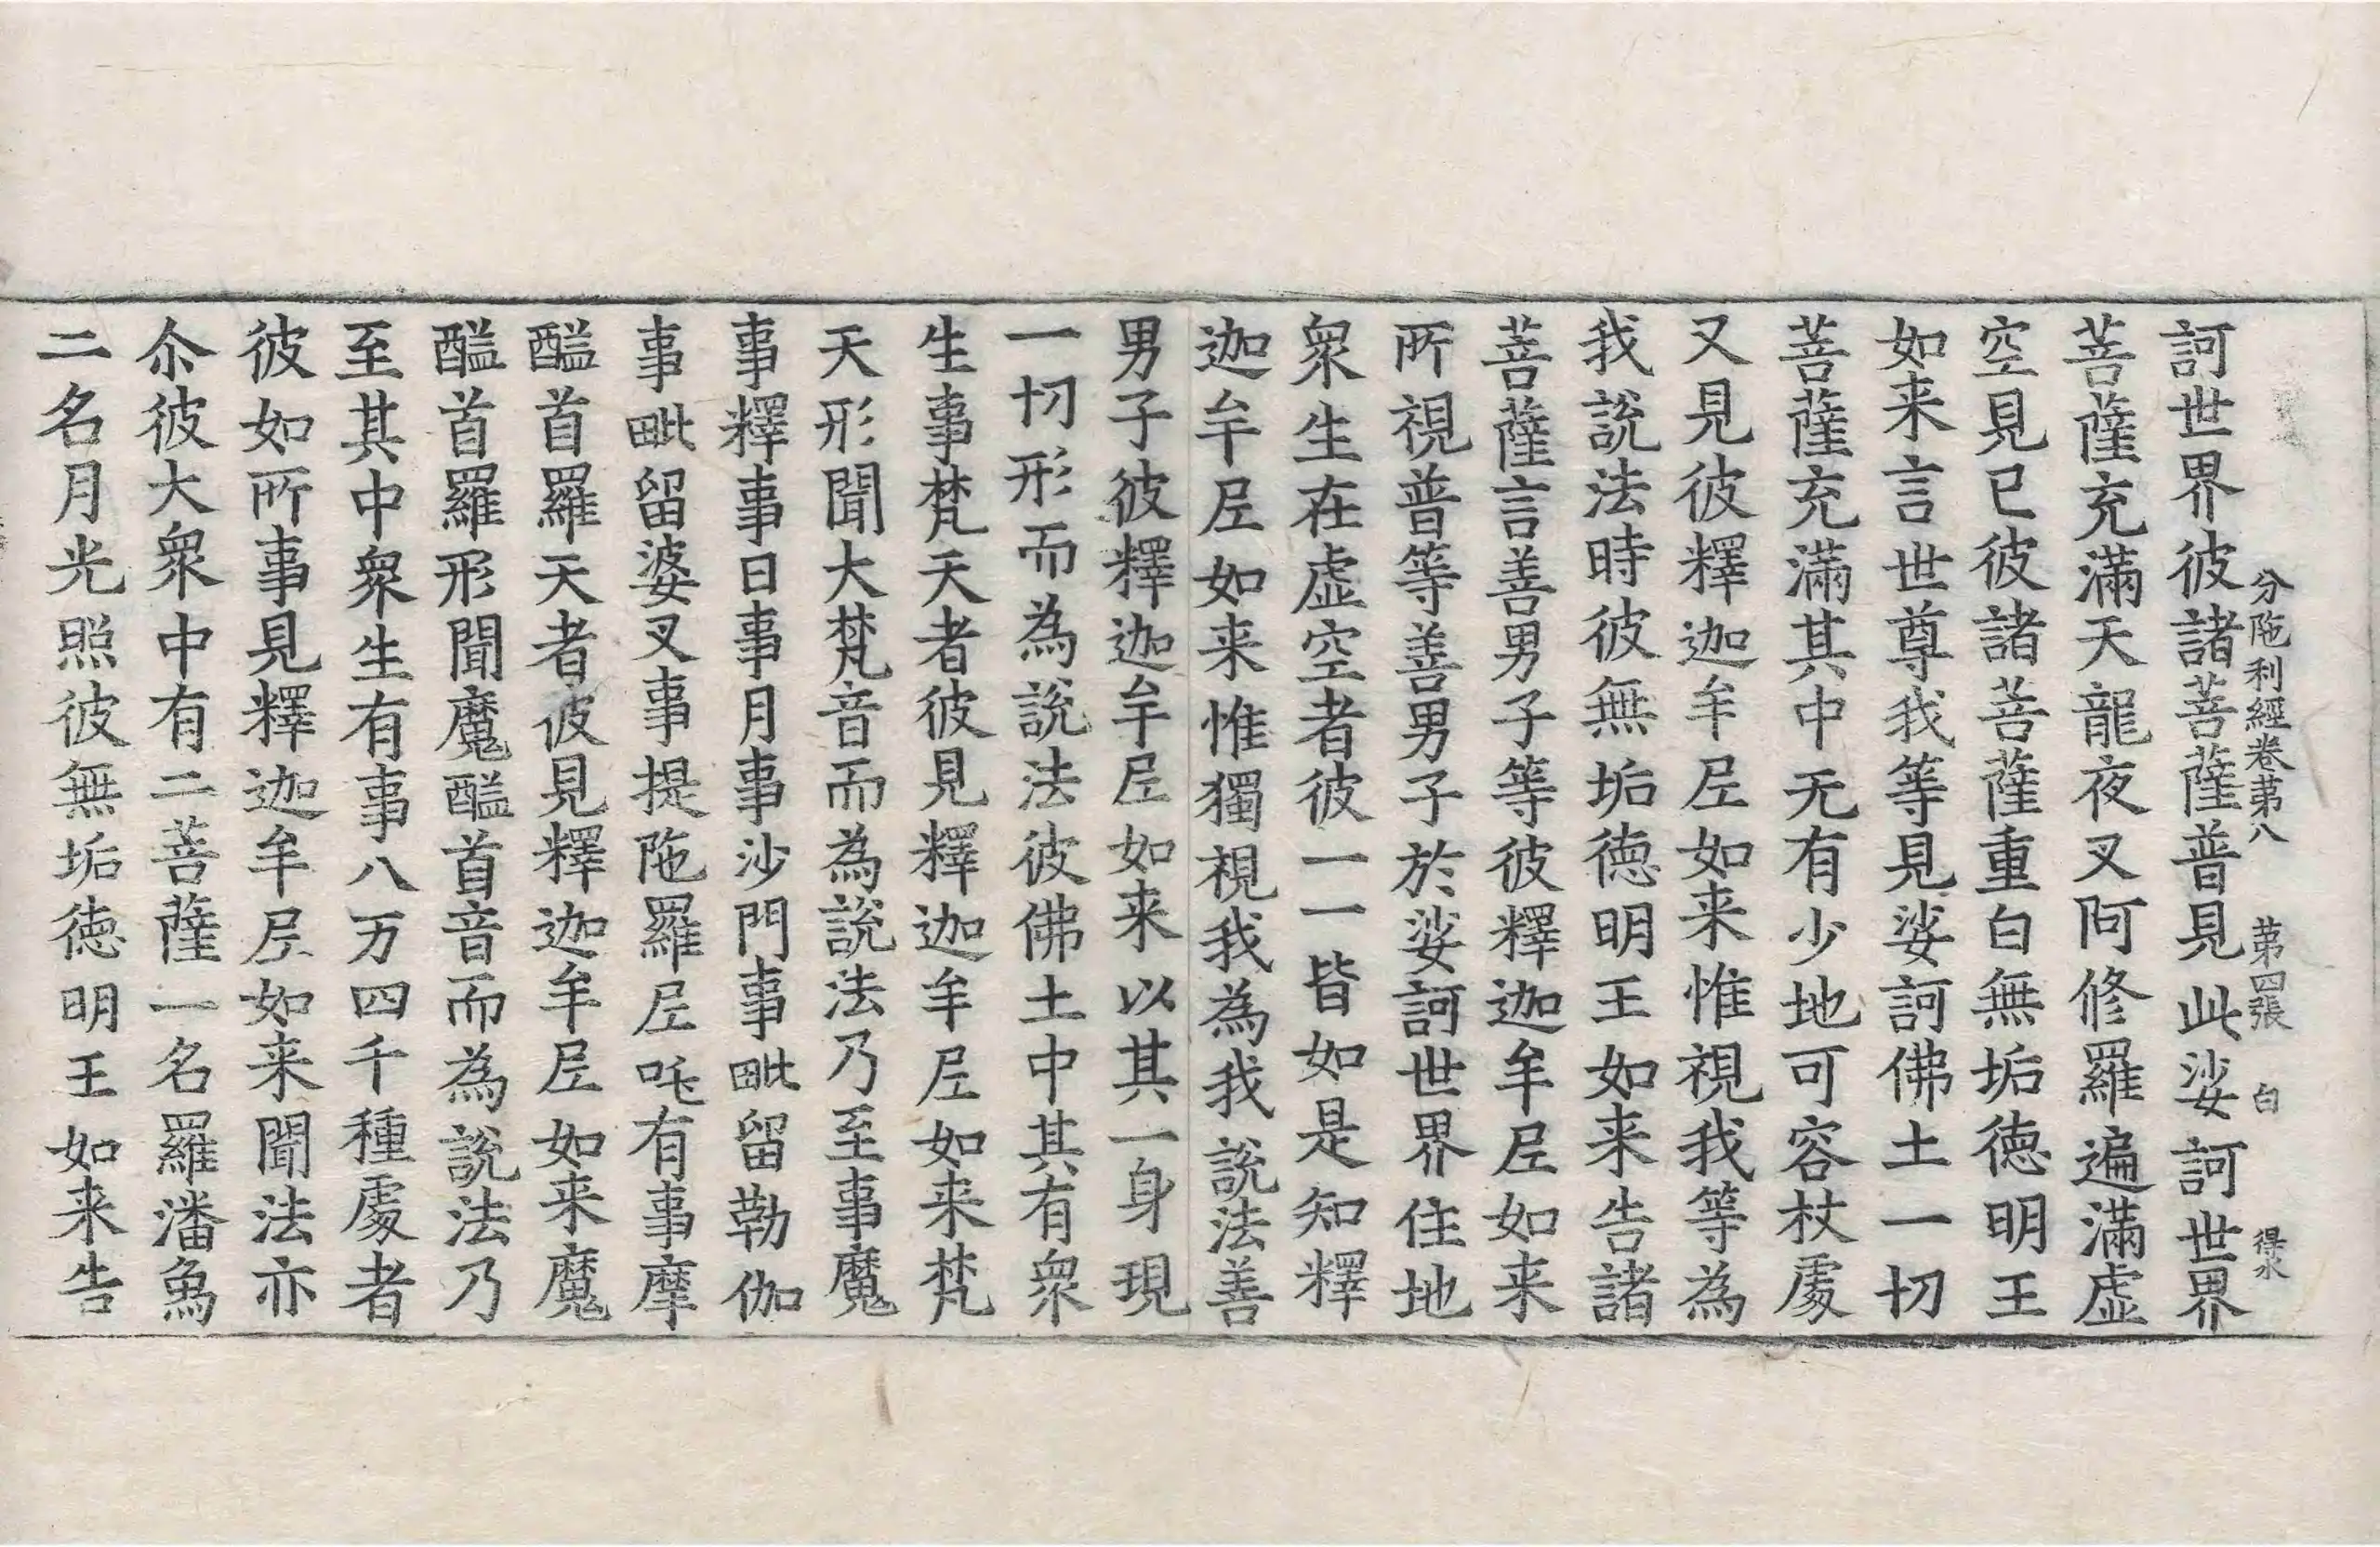 分陁利經卷苐八　苐四張　白　得水
訶世界彼諸菩薩普見此娑訶世界
菩薩充滿天龍夜叉阿修羅遍滿虛
空見已彼諸菩薩重白無垢德明王
如来言世尊我等見娑訶佛土一切
菩薩充滿其中无有少地可容杖處
又見彼釋迦牟尼如来惟視我等為
我說法時彼無垢德明王如来告諸
菩薩言善男子等彼釋迦牟尼如来
所視普等善男子於娑訶世界住地
衆生在虛空者彼一一皆如是知釋
迦牟尼如来惟獨視我為我說法善
男子彼釋迦牟尼如来以其一身現
一切形而為說法彼佛土中其有衆
生事梵天者彼見釋迦牟尼如来梵
天形聞大梵音而為說法乃至事魔
事釋事日事月事沙門事毗留勒伽
事毗留婆叉事提陁羅尼吒有事摩
醯首羅天者彼見釋迦牟尼如来魔
醯首羅形聞魔醯首音而為說法乃
至其中衆生有事八万四千種處者
彼如所事見釋迦牟尼如来聞法亦
尒彼大衆中有二菩薩一名羅潘鳥
二名月光照彼無垢德明王如来告